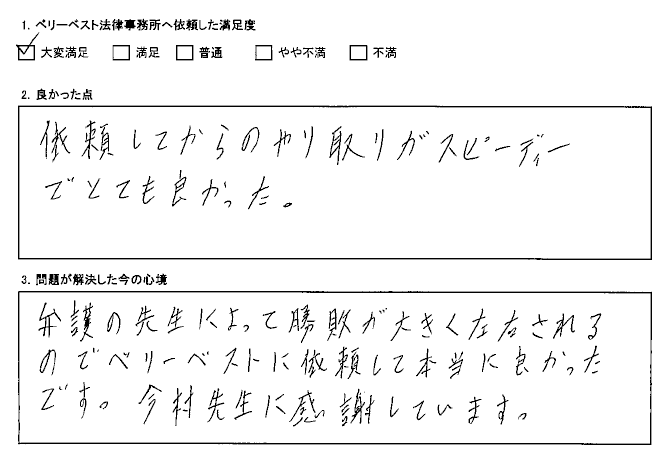 1. ベリーベスト法律事務所へ依頼した満足度
☑ 大変満足 □ 満足 □ 普通 □ やや不満 □ 不満
2. 良かった点
依頼してからのやり取りがスピーディー
でとても良かった。
3. 問題が解決した今の心境
弁護の先生によって勝敗が大きく左右される
のでベリーベストに依頼して本当に良かった
です。今村先生に感謝しています。